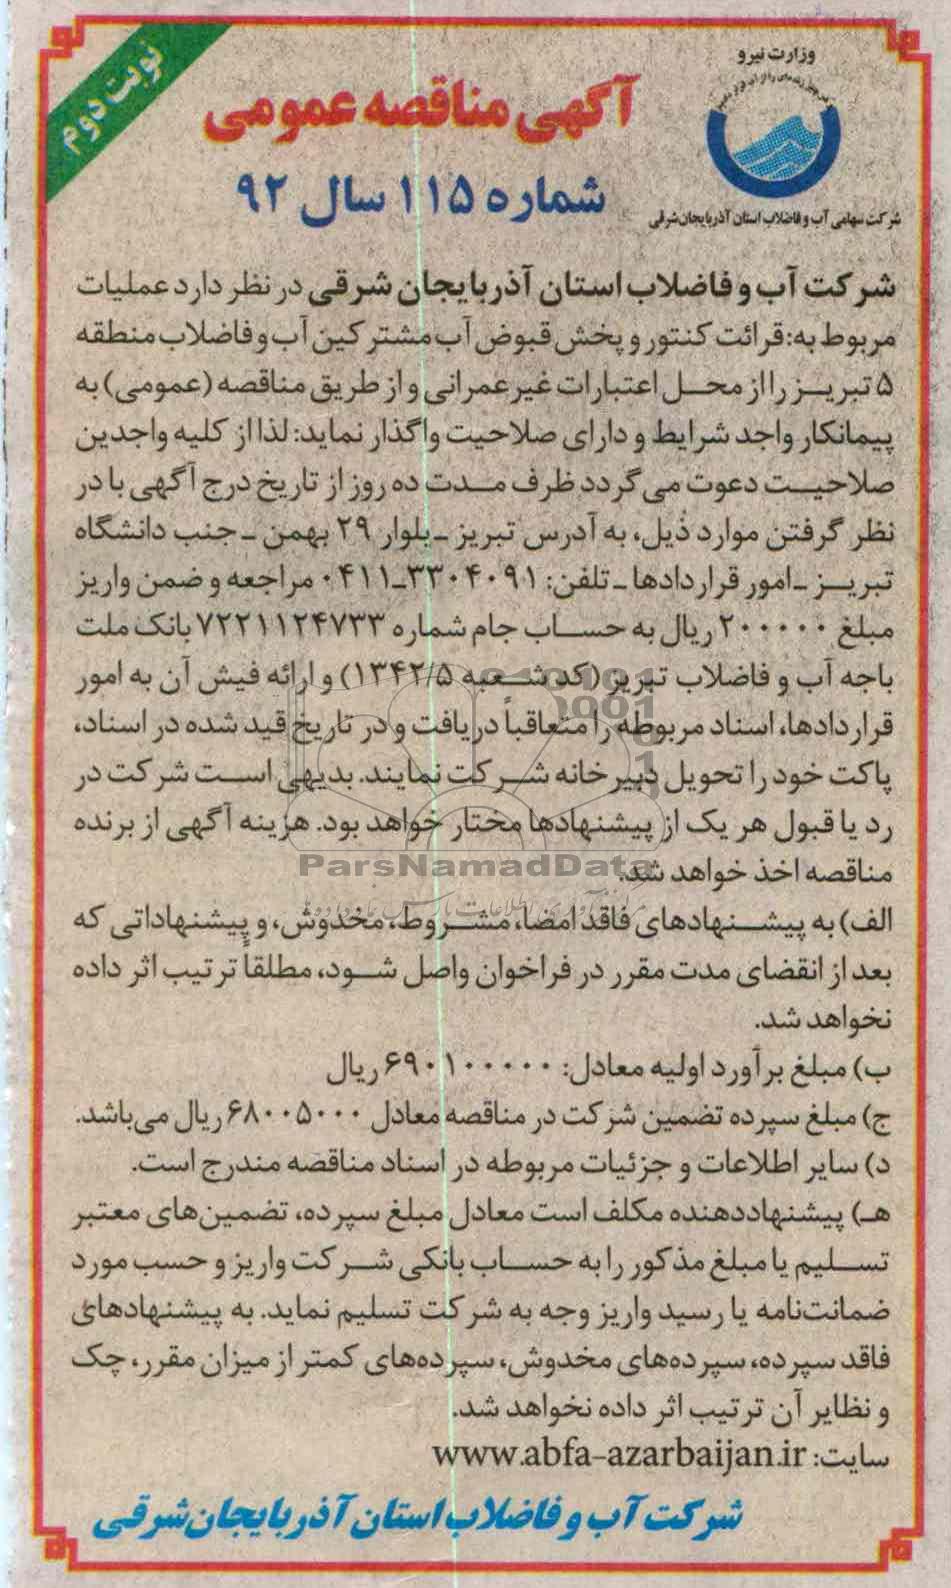 نوبت دوم
وزارت نیرو
شرکت سهامی آب و فاضلاب استان آذربایجان شرقی
آگهی مناقصه عمومی
شماره ۱۱۵ سال ۹۲
شرکت آب و فاضلاب استان آذربایجان شرقی در نظر دارد عملیات
مربوط به: قرائت کنتور و پخش قبوض آب مشترکین آب و فاضلاب منطقه
۵ تبریز را از محل اعتبارات غیرعمرانی و از طریق مناقصه (عمومی) به
پیمانکار واجد شرایط و دارای صلاحیت واگذار نماید: لذا از کلیه واجدین
صلاحیت دعوت می‌گردد ظرف مدت ده روز از تاریخ درج آگهی با در
نظر گرفتن موارد ذیل، به آدرس تبریز ـ بلوار ۲۹ بهمن ـ جنب دانشگاه
تبریز ـ امور قراردادها ـ تلفن: ۳۳۰۴۰۹۱ـ۰۴۱۱ مراجعه و ضمن واریز
مبلغ ۲۰۰۰۰۰ ریال به حساب جام شماره ۷۲۲۱۱۲۴۷۳۳ بانک ملت
باجه آب و فاضلاب تبریز (کد شعبه ۱۳۴۲/۵) و ارائه فیش آن به امور
قراردادها، اسناد مربوطه را متعاقباً دریافت و در تاریخ قید شده در اسناد،
پاکت خود را تحویل دبیرخانه شرکت نمایند. بدیهی است شرکت در
رد یا قبول هر یک از پیشنهادها مختار خواهد بود. هزینه آگهی از برنده
مناقصه اخذ خواهد شد.
ParsNamadData
الف) به پیشنهادهای فاقد امضا، مشروط، مخدوش، و پیشنهاداتی که
بعد از انقضای مدت مقرر در فراخوان واصل شود، مطلقاً ترتیب اثر داده
نخواهد شد.
ب) مبلغ برآورد اولیه معادل: ۶۹۰۱۰۰۰۰۰ ریال
ج) مبلغ سپرده تضمین شرکت در مناقصه معادل ۶۸۰۰۵۰۰۰ ریال می‌باشد.
د) سایر اطلاعات و جزئیات مربوطه در اسناد مناقصه مندرج است.
هـ) پیشنهاددهنده مکلف است معادل مبلغ سپرده، تضمین‌های معتبر
تسلیم یا مبلغ مذکور را به حساب بانکی شرکت واریز و حسب مورد
ضمانت‌نامه یا رسید واریز وجه به شرکت تسلیم نماید. به پیشنهادهای
فاقد سپرده، سپرده‌های مخدوش، سپرده‌های کمتر از میزان مقرر، چک
و نظایر آن ترتیب اثر داده نخواهد شد.
سایت: www.abfa-azarbaijan.ir
شرکت آب و فاضلاب استان آذربایجان شرقی